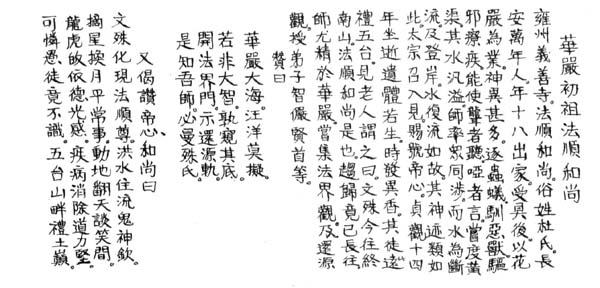 華嚴初祖法順和尚
雍州義善寺。法順和尚。俗姓杜氏。長
安萬年人。年十八出家。受具後以花
嚴為業。神異甚多。逐蟲蟻。馴惡獸。驅
邪療疾。能使聾者聽。啞者言。嘗度黃
渠。其水汎溢。師率眾同涉。而水為斷
流。及登岸。水復流如故。其神迹類如
此。太宗召入見。賜號帝心。貞觀十四
年坐逝。遺體若生。時發異香。其徒遠
禮五台。見老人謂之曰。文殊今住終
南山。法順和尚是也。趨歸竟已長往。
師尤精於華嚴。嘗集法界觀。及還源
觀。授弟子智儼。賢首等。
贊曰
華嚴大海。汪洋莫擬。
若非大智。孰窺其底。
開法界門。示還源軌。
是知吾師。必曼殊氏。
又偈讚帝心和尚曰
文殊化現法順尊。洪水住流鬼神欽。
摘星換月平常事。動地翻天談笑間。
龍虎皈依德光感。疾病消除道力堅。
可憐愚徒竟不識。五台山畔禮土巔。